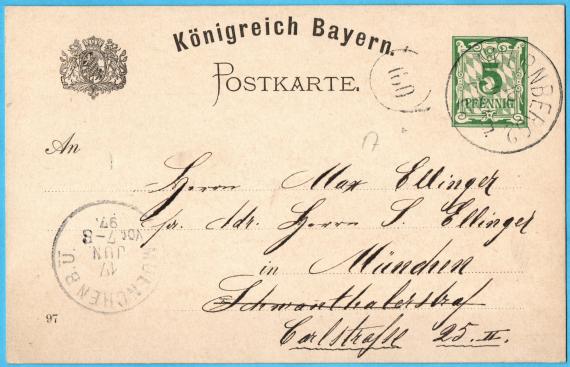 Königreich Bayern.
POSTKARTE.
5
PFENNIG
160
An
Herrn Max Ellinger
pr. Adr. Herrn S. Ellinger
in München
Schwanthalerstraß
Carlstraße 25. II.
MUENCHEN B.Ü
17
JUN
VOR 7-8
97.
97